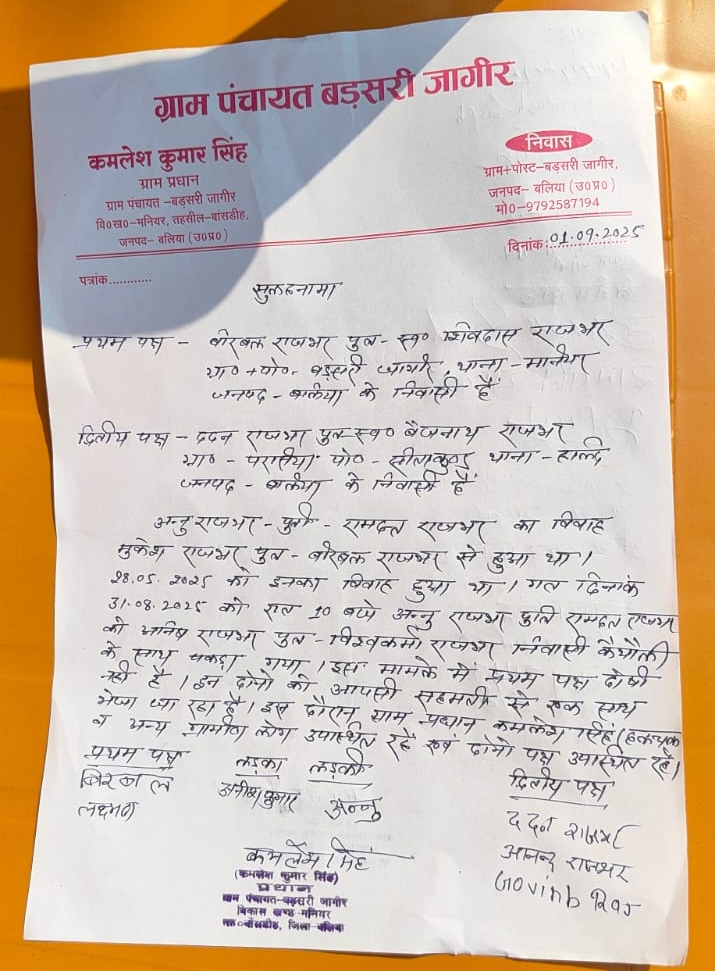 ग्राम पंचायत बड़सरी जागीर
कमलेश कुमार सिंह
ग्राम प्रधान
ग्राम पंचायत -बड़सरी जागीर
वि०ख०-मनियर, तहसील-बांसडीह,
जनपद- बलिया (उ०प्र०)
निवास
ग्राम+पोस्ट-बड़सरी जागीर,
जनपद- बलिया (उ०प्र०)
मो०-9792587194
दिनांक: 01.09.2025
पत्रांक............
सुलहनामा
प्रथम पक्ष - बीरबल राजभर पुत्र- स्व० शिवदास राजभर
ग्रा० + पो०- बड़सरी जागीर, थाना - मनियर
जनपद - बलिया के निवासी हैं
द्वितीय पक्ष - ददन राजभर पुत्र स्व० बैजनाथ राजभर
ग्रा० - परासिया पो० - सीताकुण्ड थाना - हल्दि
जनपद - बलिया के निवासी हैं
अन्नु राजभर - पुत्री - रामदत्त राजभर का विवाह
मुकेश राजभर पुत्र - बीरबल राजभर से हुआ था।
28.05.2025 को इनका विवाह हुआ था। गत दिनांक
31.08.2025 को रात 10 बजे अन्नु राजभर पुत्रि रामदत्त राजभर
को अनिष राजभर पुत्र - विश्वकर्मा राजभर निवासी कैथौली
के साथ पकड़ा गया। इस मामले में प्रथम पक्ष दोषी
नही है। इन दोनो को आपसी सहमती से एक साथ
भेजा जा रहा है। इस दौरान ग्राम प्रधान कमलेश सिंह
व अन्य ग्रामीण लोग उपास्थित रहें एवं दोनो पक्ष उपास्थित रहें।
प्रथम पक्ष
बिरबल
लक्ष्मण
लड़का
अनीश कुमार
लड़की
अन्नु
द्वितीय पक्ष
ददन राजभर
आनन्द राजभर
Govinb Raj
कमलेश सिंह
(कमलेश कुमार सिंह)
प्रधान
ग्राम पंचायत-बड़सरी जागीर
विकास खण्ड-मनियर
त०-बाँसडीह, जिला-बलिया